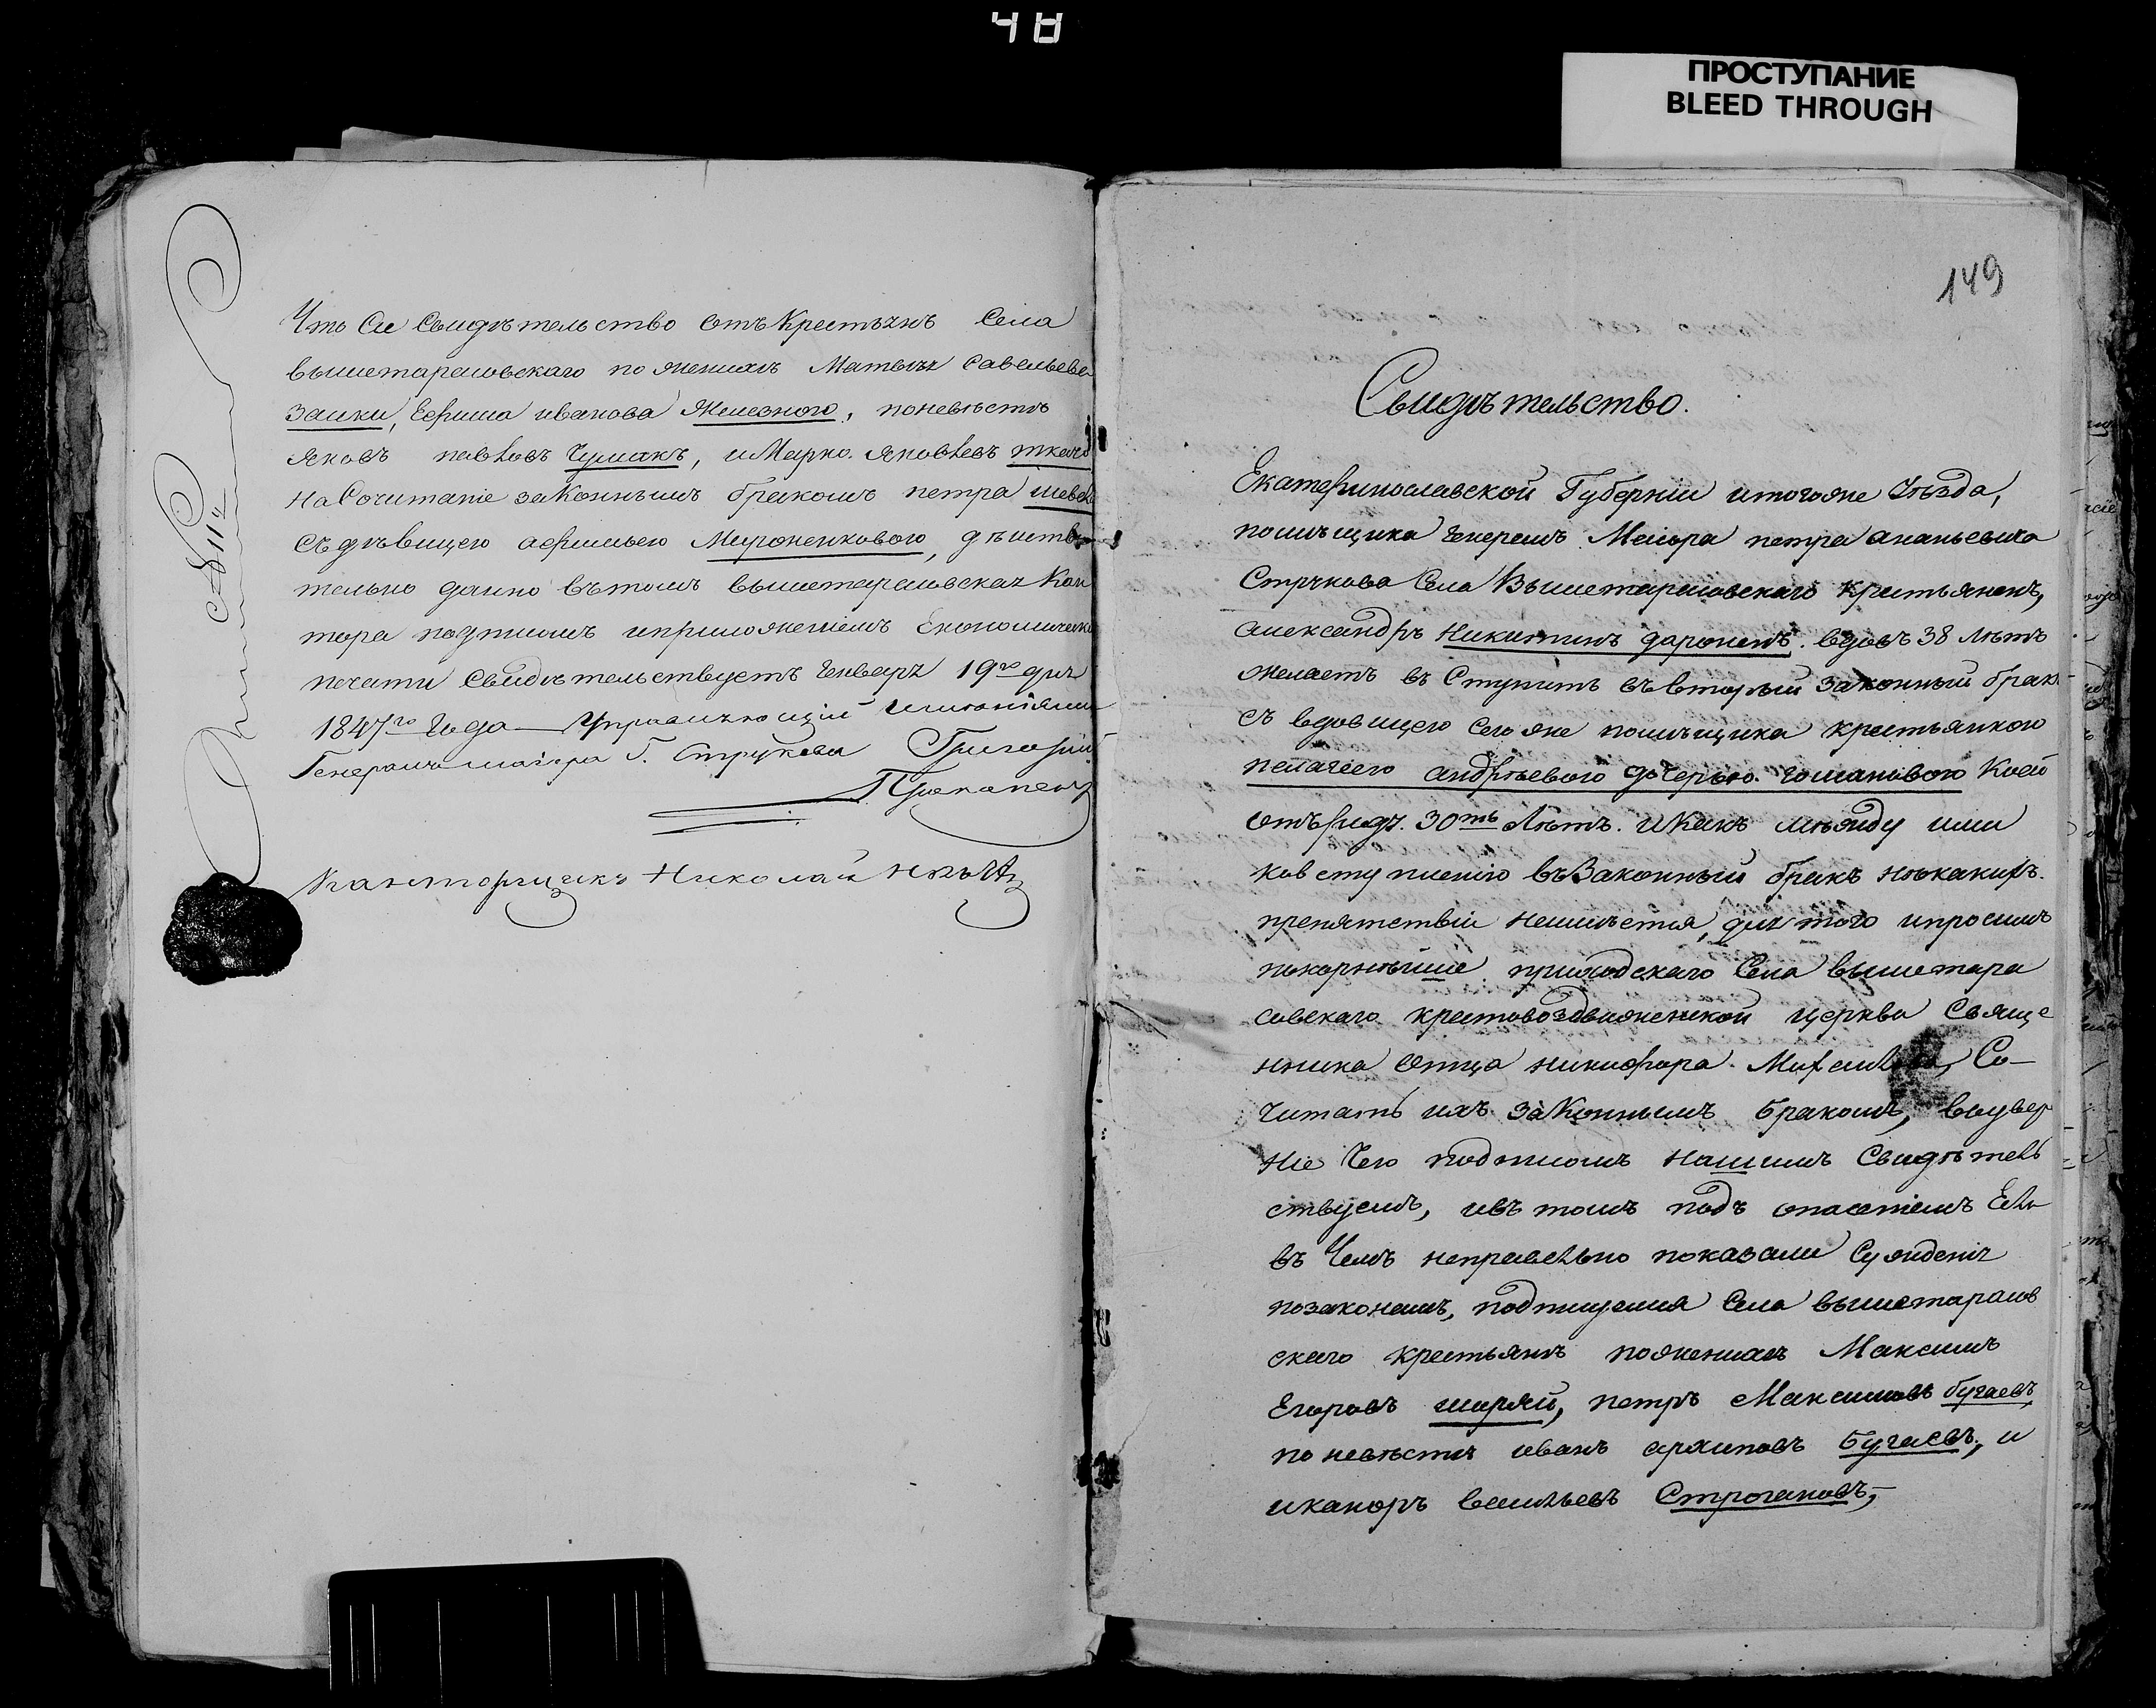 48
ПРОСТУПАНИЕ
BLEED THROUGH
Что Сие Свидѣтельство отъ Крестьянъ Села
вышетарасовскаго по женихамъ Матвѣя Савельева
Заики, Ефима иванова Железного, поневѣстѣ
яковъ павловъ Чумакъ, и Марко яковлевъ
на Сочитаніе законнымъ бракомъ петра
съ дѣвицею Мироненковою, дѣиств
тельно данно вътомъ вышетарасовская Кон
тора подписомъ иприложениемъ Економическ
печати Свидѣтельствуетъ Генваря 19го дня
1847го Года Управляющій имѣніями
Генералъ маіора Г. Струкова Григорій
Канторщикъ Николай
№ 11й
149
Свидѣтельство.
Екатеринославской Губерніи итогоже Уѣзда,
помѣщика Генералъ Маіора петра ананьевича
Струкова Села Вышетарасовскаго Крестьянинъ,
александръ Никитинъ дароненъ вдовъ 38 лѣтъ
желаетъ въ Ступить въвторый Законный бракъ
съ вдовицею сегоже помѣщика крестьянкою
пелагіею андрѣевою дочерью гомановою Коей
отъ ридъ 30ть Лѣтъ. икакъ мѣжду ими
ковступлению въЗаконный бракъ нѣкакихъ
препятствіи неимѣется, для того ипросимъ
покорнѣйше приходскаго Села вышетара
совскаго крестовоздвиженской церкви Свяще
нника Отца никифора Со-
читать ихъ заКоннымъ бракомъ, воувер
ніе Чего подписомъ нашимъ Свидѣтель
ствуемъ, ивъ томъ подъ опасениемъ Ели
въ Чемъ неправельно показали Сужденія
позаконамъ, подпишемся Села вышетарасов
скаго крестьянъ поженихамъ Максимъ
Егоровъ ширяй, петръ Максимовъ бугаевъ
по невѣстѣ иванъ архиповъ бугаевъ, и
иканоръ васильевъ Строгановъ,-